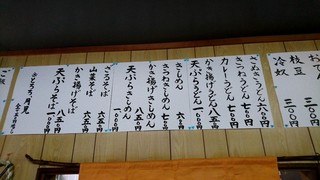 おでん
枝豆 三〇〇円
冷奴 三〇〇円
さぬきうどん 六〇〇円
きつねうどん 七〇〇円
カレーうどん 七〇〇円
かき揚げうどん 八五〇円
天ぷらうどん 一、〇〇〇円
きしめん 六五〇円
きつねきしめん 七〇〇円
かき揚げきしめん 八五〇円
天ぷらきしめん 一、〇〇〇円
ざるそば 六五〇円
山菜そば 六五〇円
かき揚げそば 八五〇円
天ぷらそば 一、〇〇〇円
おとろろ、月見
ご飯